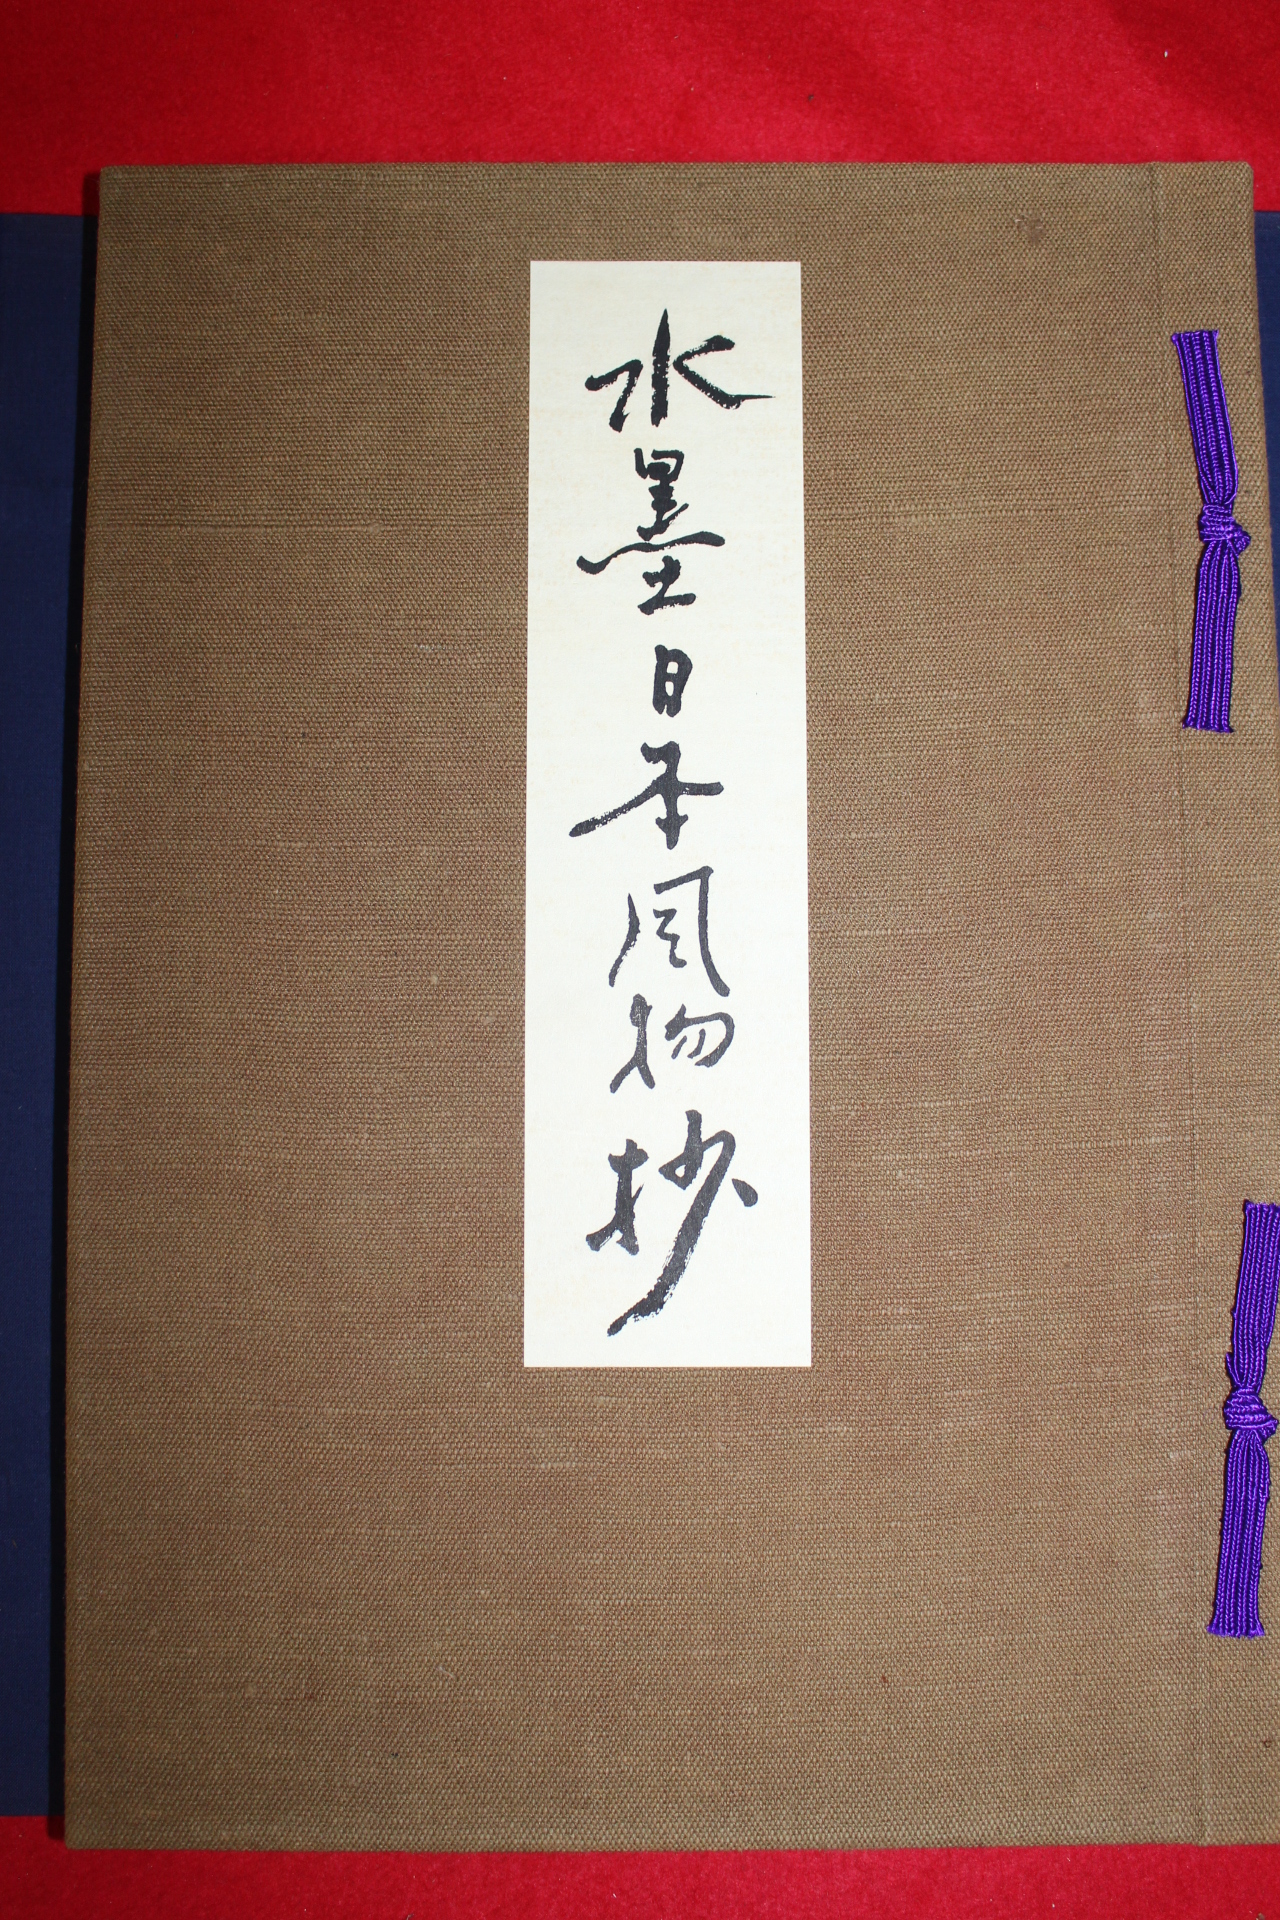 水墨日本风物抄